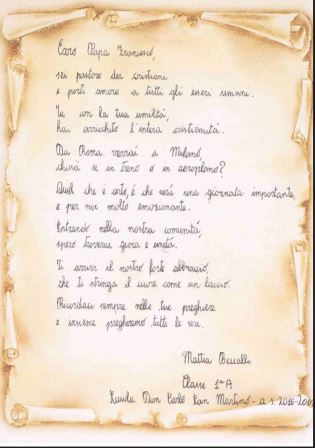 Caro Papa Francesco,
sei pastore dei cristiani
e porti amore a tutti gli esseri umani.
Tu con la tua umiltà,
hai arricchito l'intera cristianità.
Da Roma verrai a Milano,
chissà se in treno o in aeroplano?
Quel che è certo, è che sarà una giornata importante,
e per noi molto emozionante.
Entrando nella nostra comunità,
spero troverai gioia e unità.
Ti arrivi il nostro forte abbraccio,
che ti stringa il cuore come un laccio.
Ricordaci sempre nelle tue preghiere
e insieme pregheremo tutte le sere.
Mattia Beccalli
Classe 1ᵃ A
Scuola Don Carlo San Martino - a.s. 2016-201